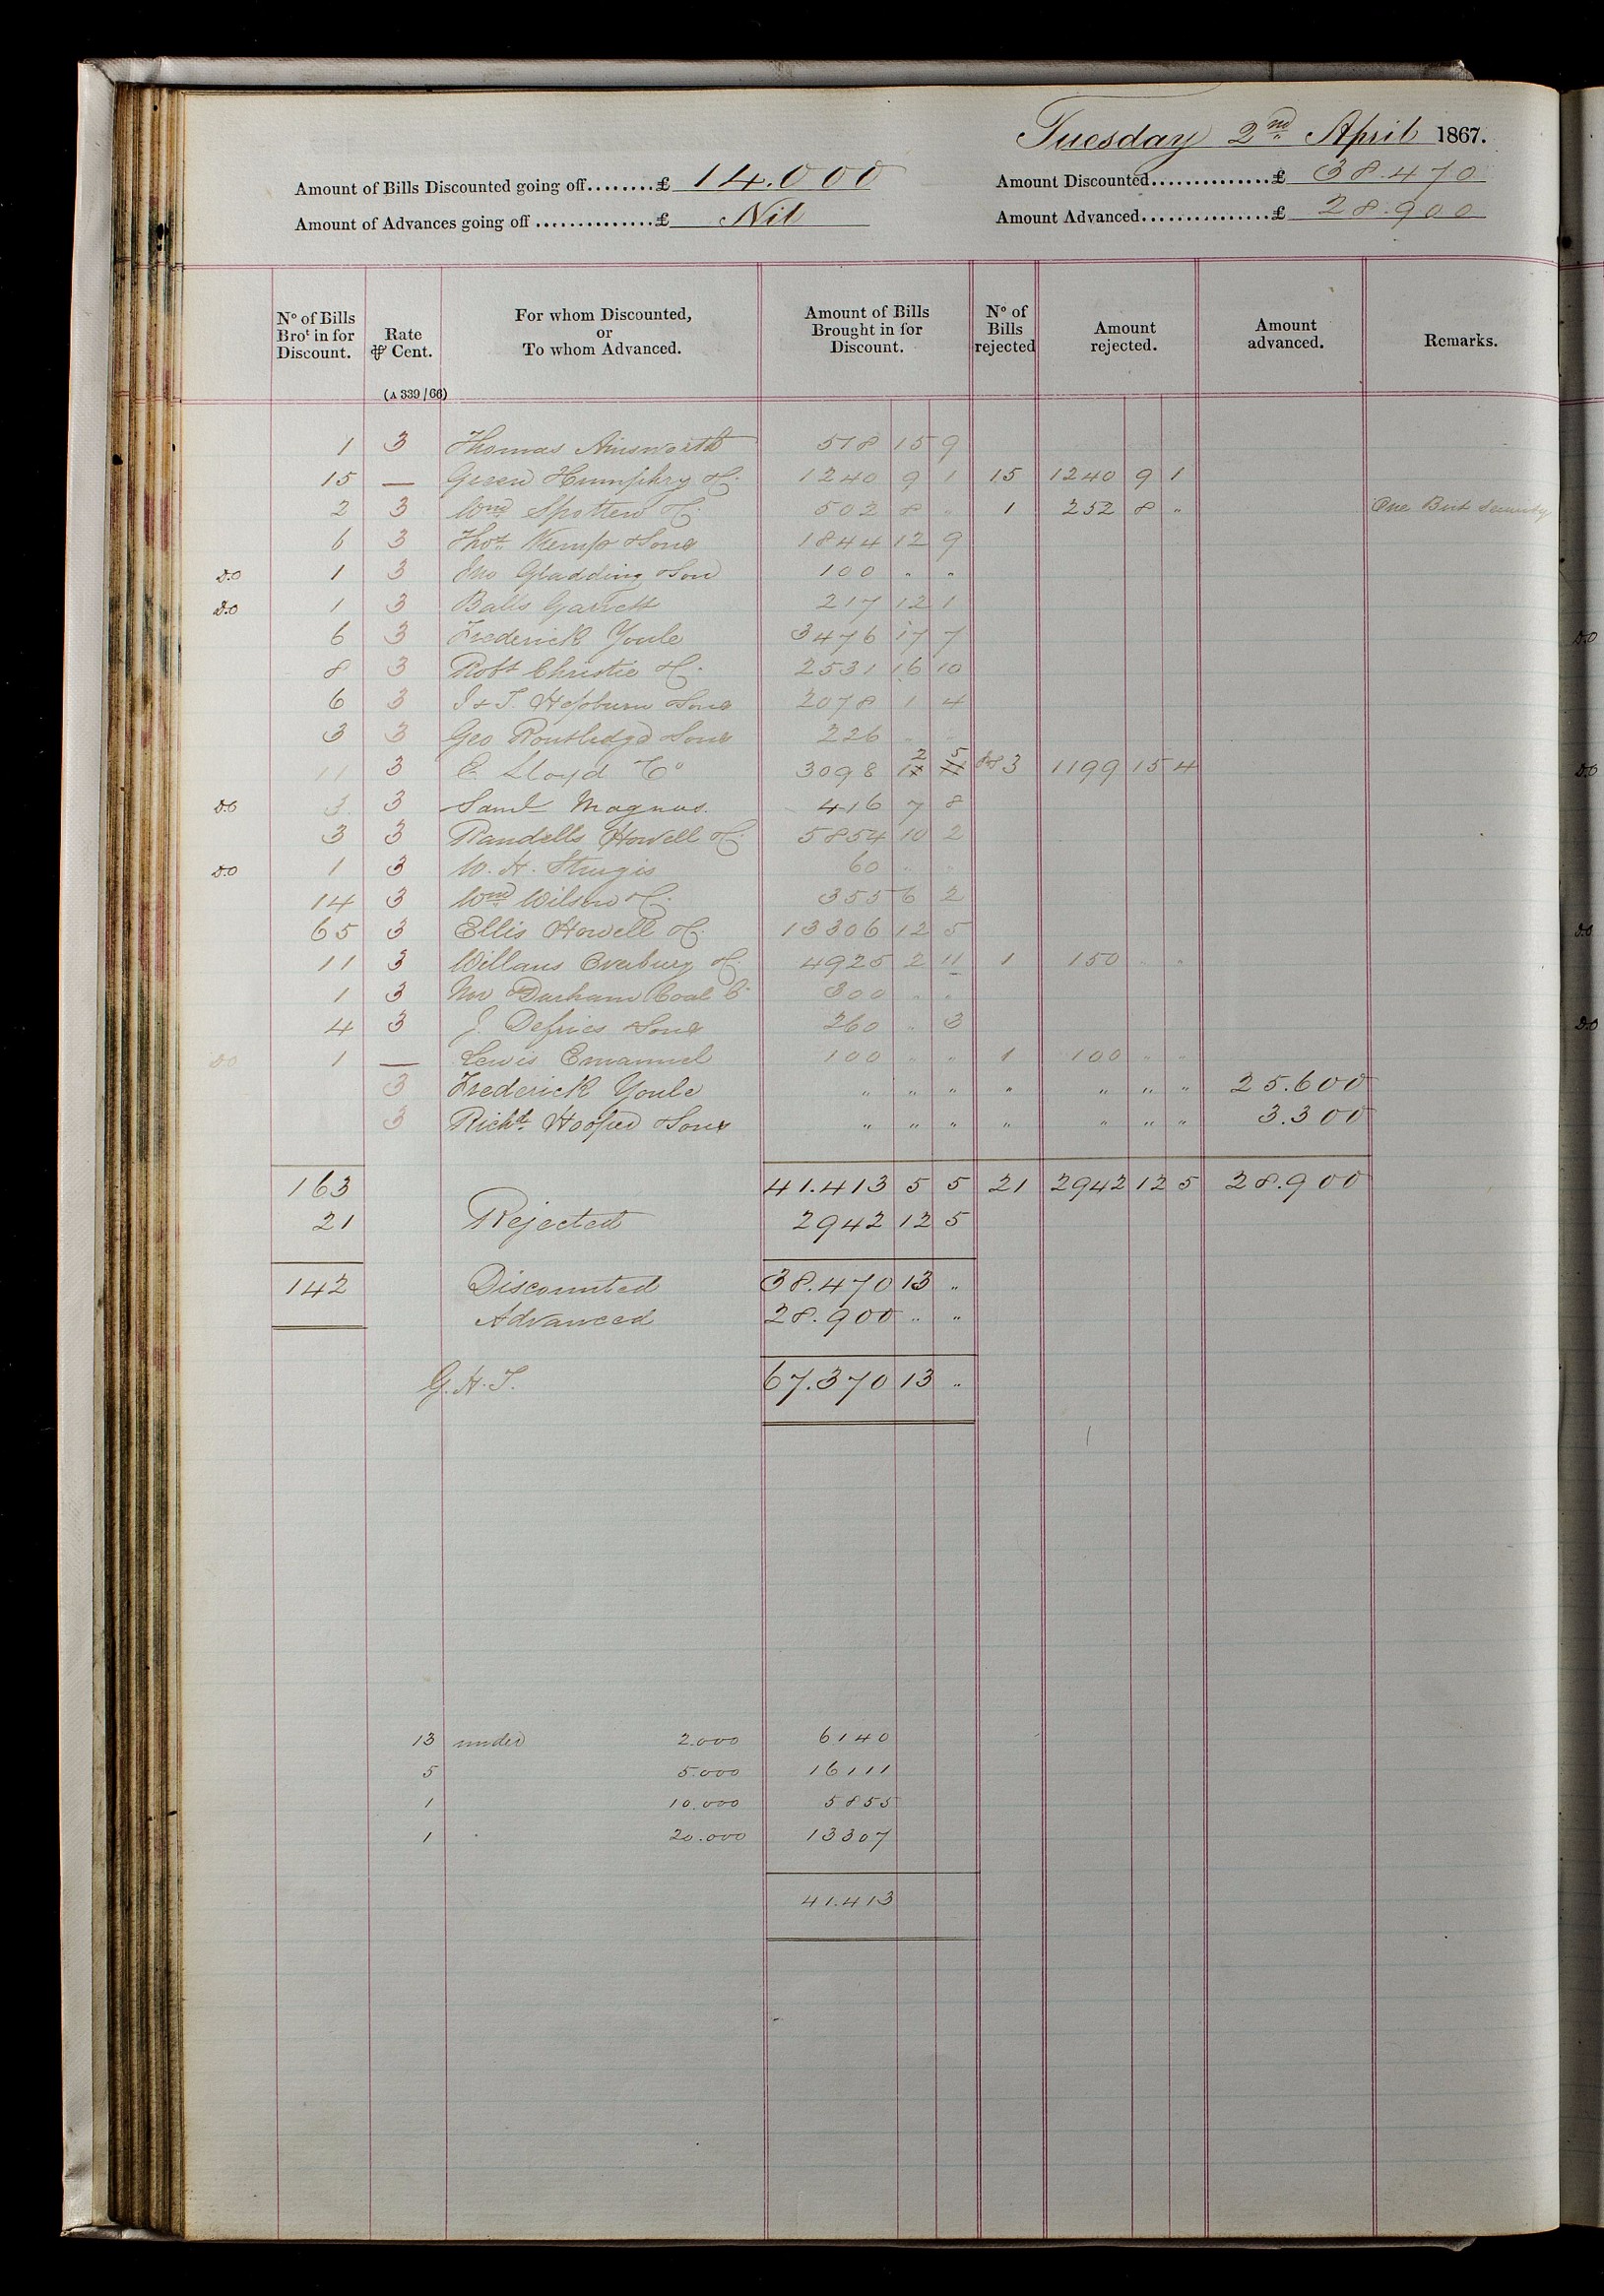 Tuesday 2nd April 1867.
Amount of Bills Discounted going off........£ 14.000 Amount Discounted...............£ 38.470
Amount of Advances going off...............£ Nil Amount Advanced................£ 28.900
No of Bills Brot in for Discount. Rate ⅌ Cent. For whom Discounted, or To whom Advanced. Amount of Bills Brought in for Discount. No of Bills rejected Amount rejected. Amount advanced. Remarks.
(A 339/66)
1 3 Thomas Ainsworth 518 15 9
15 — Green Humphry & Co 1240 9 1 15 1240 9 1
2 3 Wm Spotten & Co 502 8 " 1 252 8 " One Bill Security
6 3 Thos Kemp & Sons 1844 12 9
D.O 1 3 Jno Gladding & Son 100 " "
D.O 1 3 Balls Garrett 217 12 1
6 3 Frederick Youle 3476 17 7
8 3 Robt Christie & Co 2531 16 10
6 3 J & T. Hepburn & Sons 2078 1 4
3 3 Geo Routledge & Sons 226 " "
11 3 E. Lloyd & Co 3098 2 5 3 1199 15 4
D.O 3 3 Saml Magnus. 416 7 8
3 3 Randells Howell & Co 5854 10 2
D.O 1 3 W. H. Sturgis 60 " "
14 3 Wm Wilson & Co 355 6 2
65 3 Ellis Howell & Co 13306 12 5
11 3 Willans Overbury & Co 4925 2 11 1 150 " "
1 3 Durham Coal Co 300 " "
4 3 J. Defries & Sons 260 " 3
D.O 1 — Lewis Emanuel 100 " " 1 100 " "
3 Frederick Youle " " " " " " " 25.600
3 Richd Hooper & Sons " " " " " " " 3.300
163 41.413 5 5 21 2942 12 5 28.900
21 Rejected 2942 12 5
142 Discounted 38.470 13 "
Advanced 28.900 " "
G.H.T. 67.370 13 "
13 under 2.000 6140
5 5.000 16111
1 10.000 5855
1 " 20.000 13307
41.413